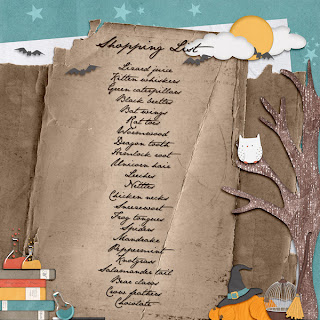 Shopping List
Lizard juice
Kitten whiskers
Green caterpillars
Black beetles
Bat wings
Rat toes
Wormwood
Dragon tooth
Hemlock root
Unicorn hair
Leeches
Nettles
Chicken necks
Sneezewort
Frog tongues
Spiders
Mandrake
Peppermint
Knotgrass
Salamander tail
Bear claws
Crow feathers
Chocolate